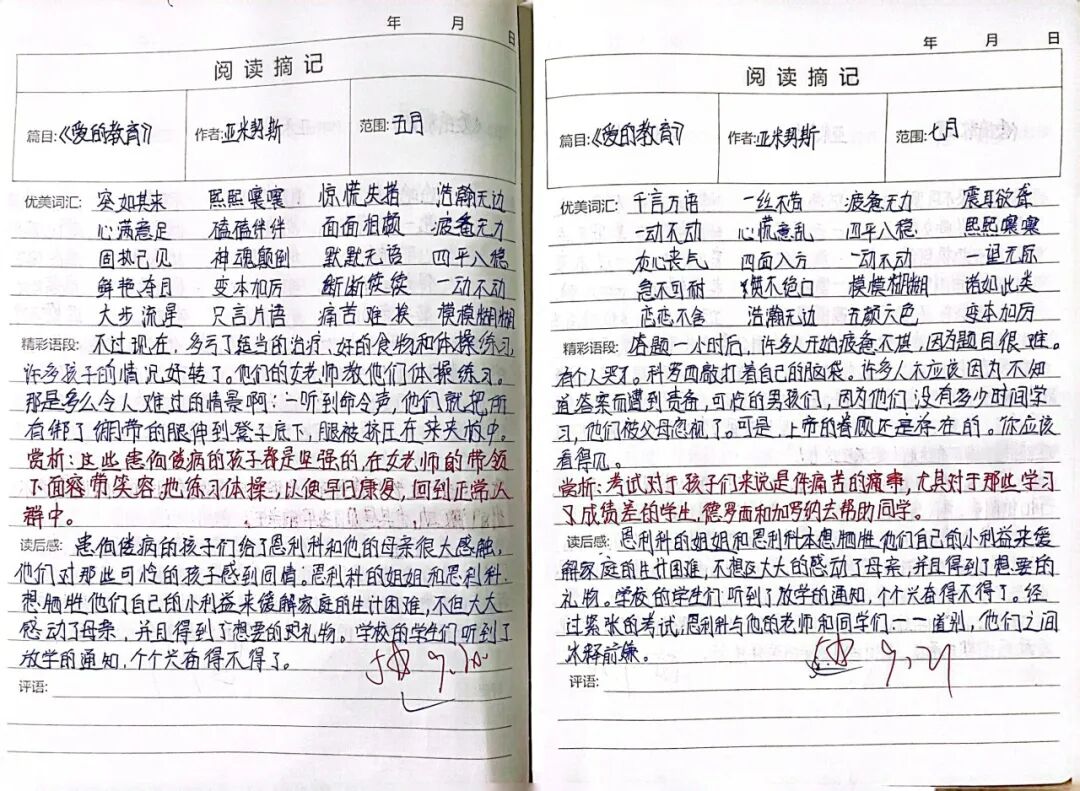 年 月 日
阅读摘记
篇目:《爱的教育》 作者:亚米契斯 范围:五月
优美词汇: 突如其来 熙熙嚷嚷 惊慌失措 浩瀚无边
心满意足 磕磕伴伴 面面相觑 疲惫无力
固执己见 神魂颠倒 默默无语 四平八稳
鲜艳夺目 变本加厉 断断续续 一动不动
大步流星 只言片语 痛苦难挨 模模糊糊
精彩语段: 不过现在,多亏了适当的治疗、好的食物和体操练习
许多孩子的情况好转了。他们的女老师教他们体操练习。
那是多么令人难过的情景啊:一听到命令声,他们就把所
有绑了绷带的腿伸到凳子底下,腿被挤压在夹夹板中。
赏析:这些患佝偻病的孩子都是坚强的,在女老师的带领
下面容带笑容地练习体操,以便早日康复,回到正常人
群中。
读后感: 患佝偻病的孩子们给了恩利科和他的母亲很大感触,
他们对那些可怜的孩子感到同情。恩利科的姐姐和恩利科
想牺牲他们自己的小利益来缓解家庭的生计困难,不但大大
感动了母亲,并且得到了想要的礼物。学校的学生们听到了
放学的通知,个个兴奋得不得了。
评语:
年 月 日
阅读摘记
篇目:《爱的教育》 作者:亚米契斯 范围:七月
优美词汇: 千言万语 一丝不苟 疲惫无力 震耳欲聋
一动不动 心慌意乱 四平八稳 熙熙嚷嚷
灰心丧气 四面八方 一动不动 一望无际
急不可耐 赞不绝口 模模糊糊 诸如此类
恋恋不舍 浩瀚无边 五颜六色 变本加厉
精彩语段: 答题一小时后,许多人开始疲惫不堪,因为题目很难。
有个人哭了。科罗西敲打着自己的脑袋。许多人不应该因为不知
道答案而遭到责备,可怜的男孩们,因为他们没有多少时间学
习,他们被父母忽视了。可是,上帝的眷顾还是存在的。你应该
看得见。
赏析:考试对于孩子们来说是件痛苦的事,尤其对于那些学习
成绩差的学生,德罗西和加罗纳去帮助同学。
读后感: 恩利科的姐姐和恩利科本想牺牲他们自己的小利益来缓
解家庭的生计困难,不想大大的感动了母亲,并且得到了想要的
礼物。学校的学生们听到了放学的通知,个个兴奋得不得了。经
过紧张的考试,恩利科与他的老师和同学们一一道别,他们之间
冰释前嫌。
评语: